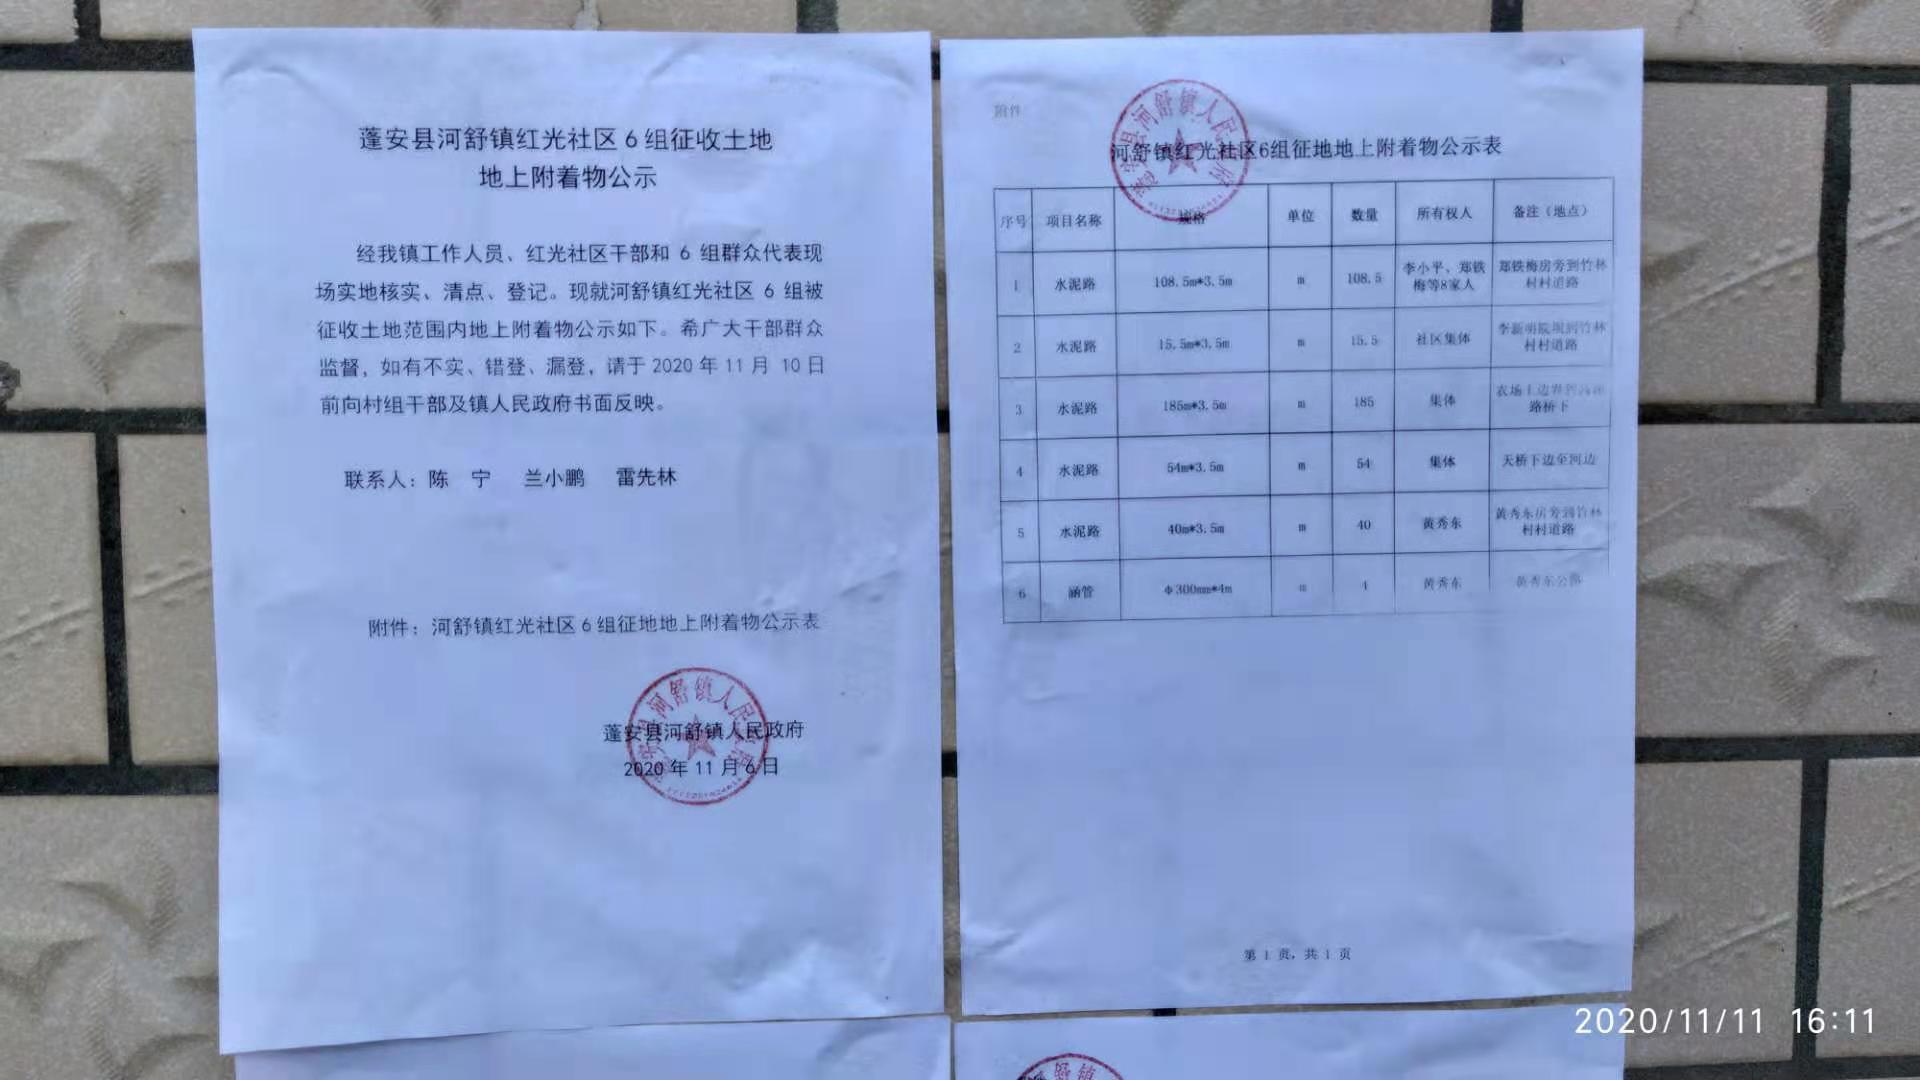 蓬安县河舒镇红光社区6组征收土地
地上附着物公示
经我镇工作人员、红光社区干部和 6 组群众代表现
场实地核实、清点、登记。现就河舒镇红光社区 6 组被
征收土地范围内地上附着物公示如下。希广大干部群众
监督，如有不实、错登、漏登，请于 2020 年 11 月 10 日
前向村组干部及镇人民政府书面反映。
联系人：陈 宁 兰小鹏 雷先林
附件：河舒镇红光社区6组征地地上附着物公示表
蓬安县河舒镇人民政府
2020 年 11 月 6 日
附件
河舒镇红光社区6组征地地上附着物公示表
序号 项目名称 规格 单位 数量 所有权人 备注（地点）
1 水泥路 108.5m*3.5m m 108.5 李小平、郑铁梅等8家人 郑铁梅房旁到竹林村村道路
2 水泥路 15.5m*3.5m m 15.5 社区集体 李新明院坝到竹林村村道路
3 水泥路 185m*3.5m m 185 集体 农场上边 路桥下
4 水泥路 54m*3.5m m 54 集体 天桥下边至河边
5 水泥路 40m*3.5m m 40 黄秀东 黄秀东房旁到竹林村村道路
6 涵管 Φ300mm*4m m 4 黄秀东 黄秀东公路
第 1 页，共 1 页
2020/11/11 16:11